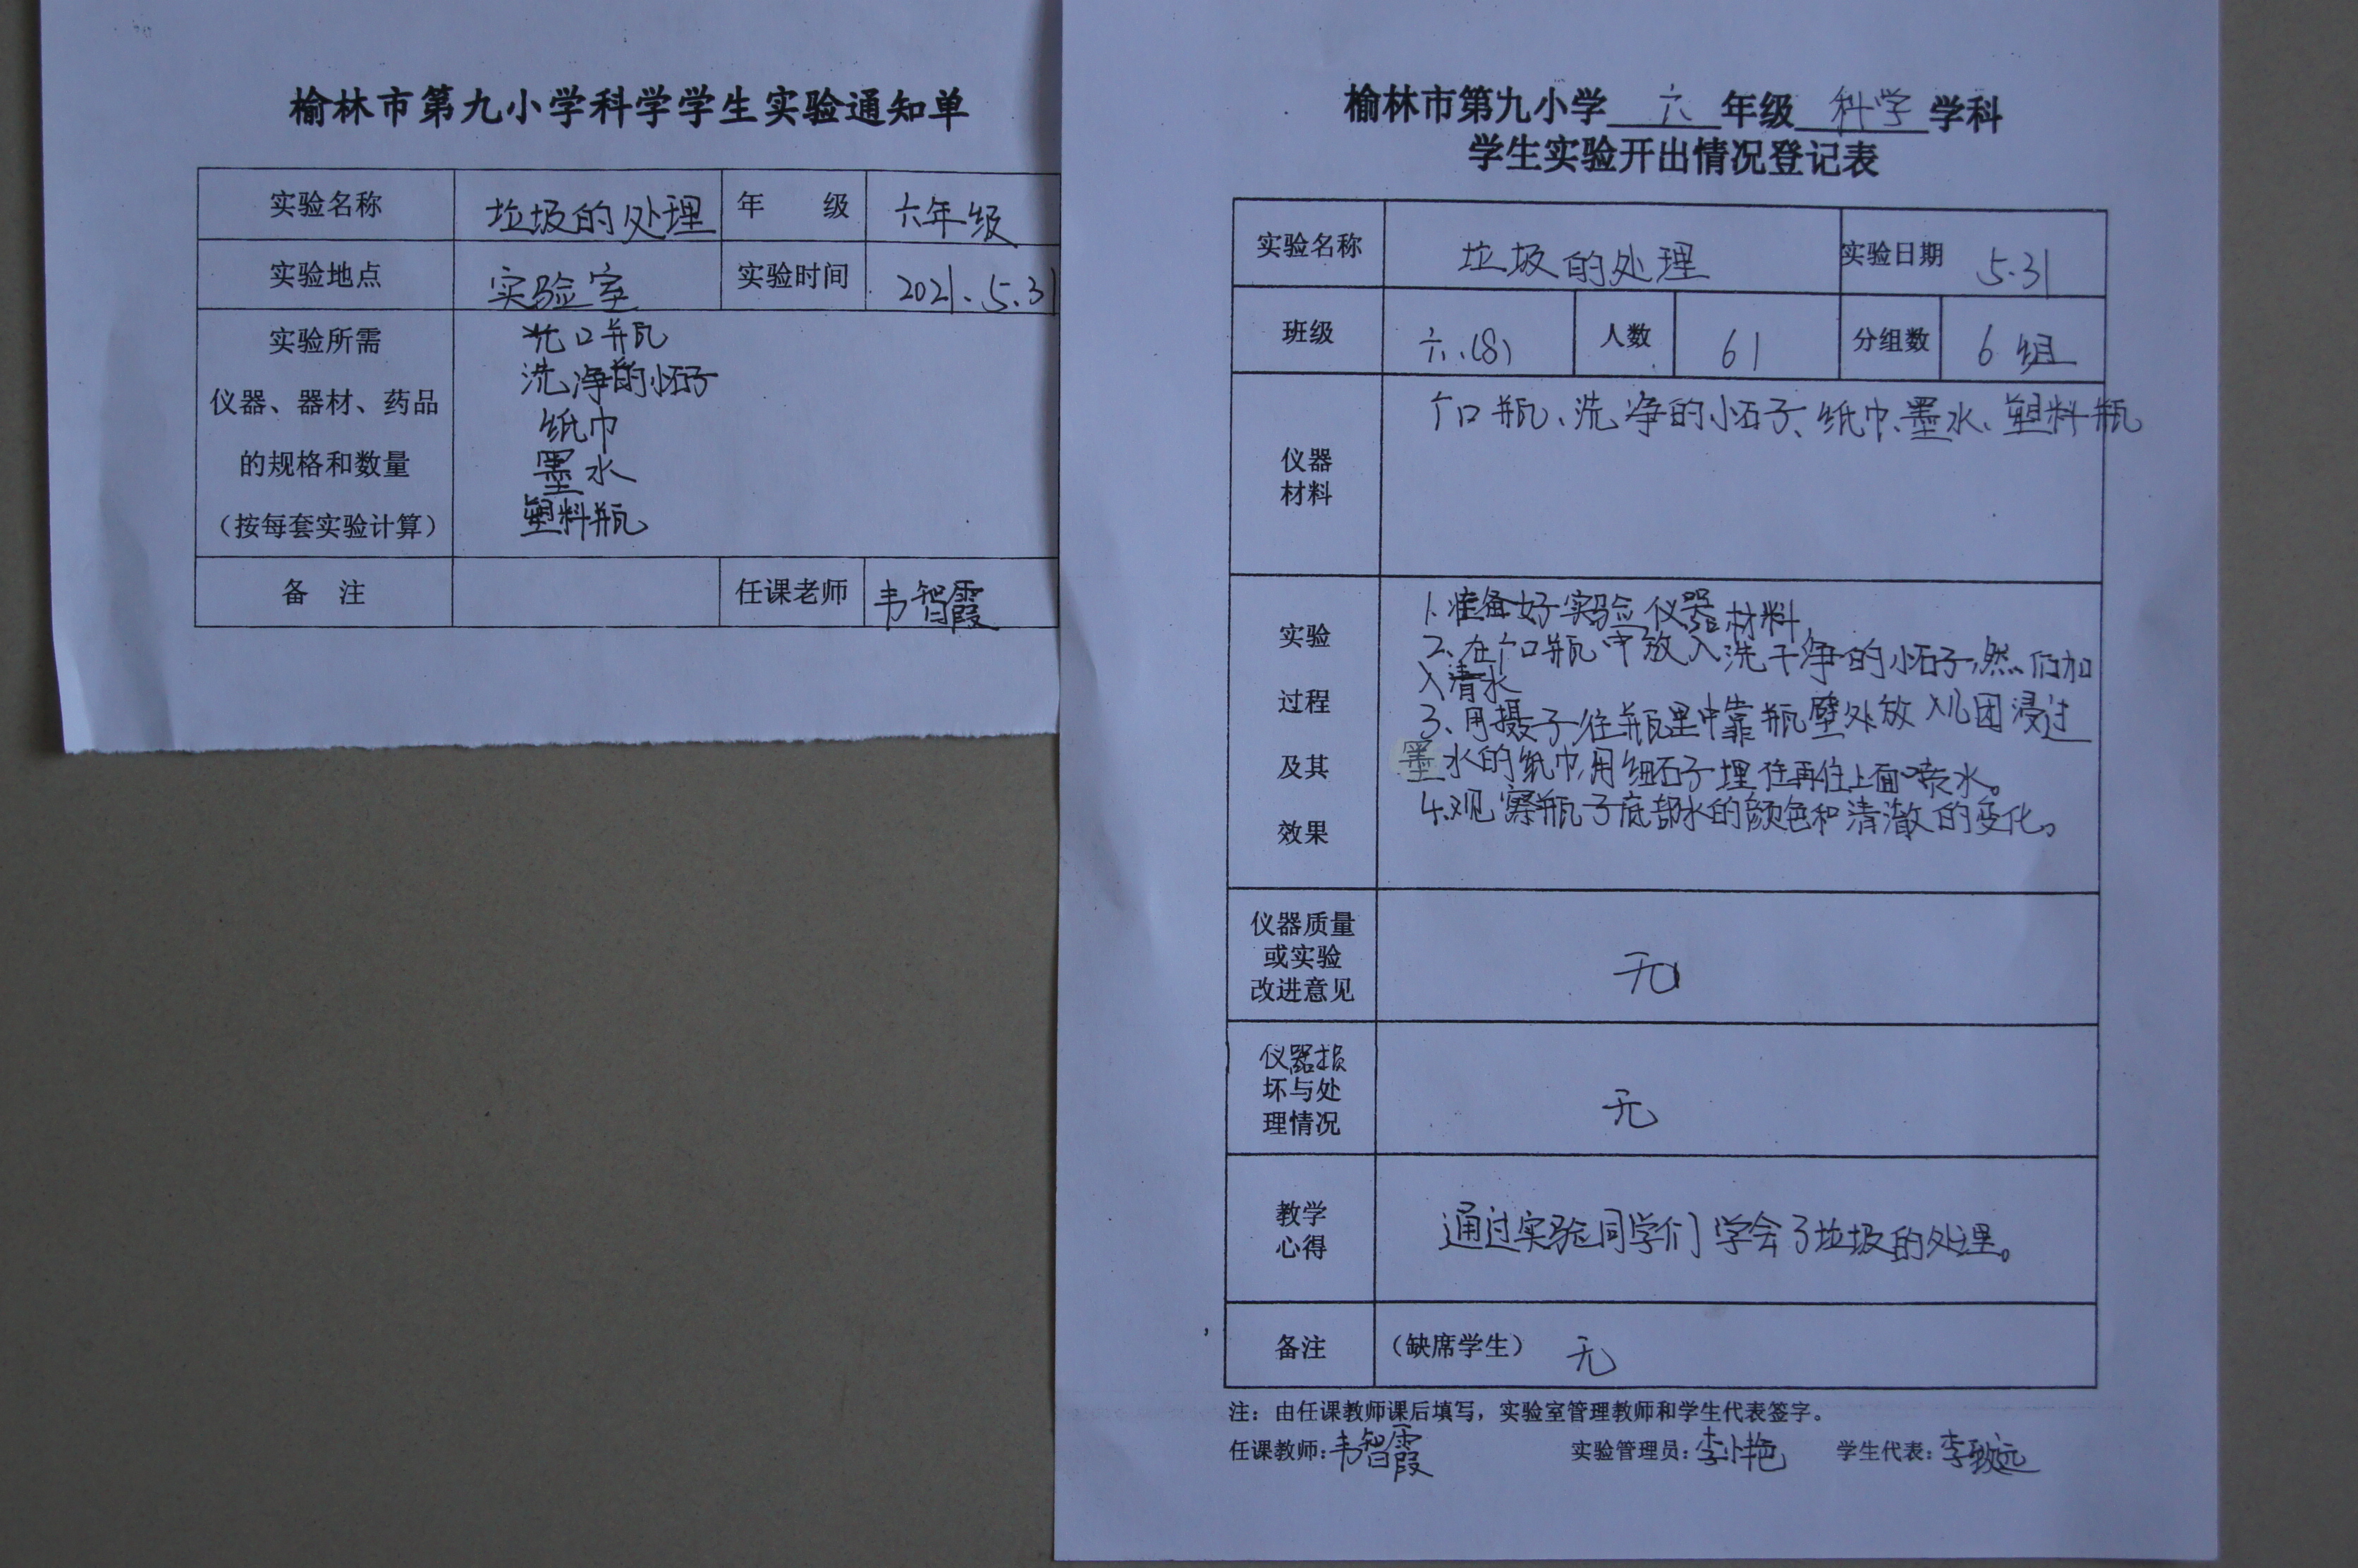 榆林市第九小学科学学生实验通知单
实验名称 垃圾的处理 年 级 六年级
实验地点 实验室 实验时间 2021.5.31
实验所需
仪器、器材、药品
的规格和数量
（按每套实验计算）
口瓶
洗净的小石子
纸巾
墨水
塑料瓶
备 注 任课老师 韦智霞
榆林市第九小学 六 年级 科学 学科
学生实验开出情况登记表
实验名称 垃圾的处理 实验日期 5.31
班级 六.(8) 人数 61 分组数 6组
仪器
材料
口瓶、洗净的小石子、纸巾、墨水、塑料瓶
实验
过程
及其
效果
1.准备好实验仪器材料,
2.在口瓶中放入洗干净的小石子,然后加
入清水
3、用摄子往瓶里中靠瓶壁处放入几团浸过
墨水的纸巾,用细石子埋住再往上面喷水。
4.观察瓶子底部水的颜色和清澈的变化。
仪器质量
或实验
改进意见
无
仪器损
坏与处
理情况
无
教学
心得
通过实验同学们学会了垃圾的处理。
备注 （缺席学生） 无
注：由任课教师课后填写，实验室管理教师和学生代表签字。
任课教师:韦智霞 实验管理员:李小艳 学生代表:李致远